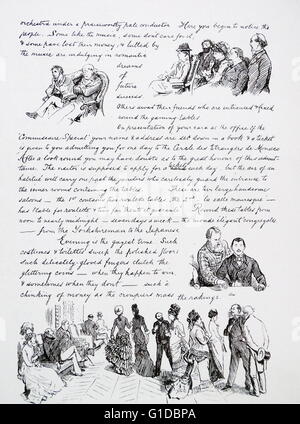 orchestra under a praiseworthy pale conductor Here you begin to notice the
people. Some like the music, some dont care for it,
& some have lost their money, & lulled by
the music are indulging in romantic
dreams
of
future
success.
Others await their friends who are entranced & fixed
around the gaming tables
On presentation of your card at the office of the
"Commissaire Special" your name & address are set down in a book & a ticket
is given to you admitting you for one day to the Cercle des Etrangers de Monaco
After a look round you may have doubts as to the great honour of this admit-
tance. The visitor is supposed to apply for a ticket each day but the one of an
habitué will carry one past the guides who carefully guard the entrance to
the inner room containing the tables. There are two large handsome
saloons — the 1st contains two roulette tables, the 2nd
has 1 table for roulette & two for trente et quarante. Round these tables from
noon to nearly midnight — Sundays & all — the most diligent congregate
— from the Yorkshireman to the Japanese
Evening is the gayest time Such
costumes & toilettes sweep the polished floors
such delicately gloved fingers clutch the
glittering coins — when they happen to win
& sometimes when they dont — such a
chinking of money as the croupiers made the rakings.
alamy
G1DBPA